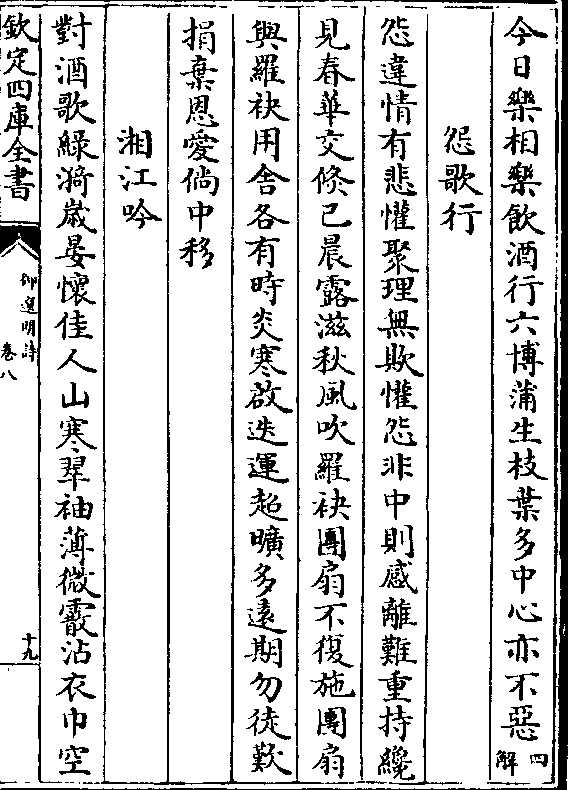 今日樂相樂飲酒行六博蒲生枝葉多中心亦不惡四解
怨歌行
怨違情有悲懽聚理無欺懽怨非中則感離難重持纔
見春華交倐已晨露滋秋風吹羅袂團扇不復施團扇
與羅袂用舍各有時炎寒啟迭運超曠多遠期勿徒歎
捐棄恩愛倘中移
湘江吟
對酒歌緑漪歲晏懷佳人山寒翠袖薄微霰沾衣巾空
欽定四庫全書
御選明詩
卷八
十九